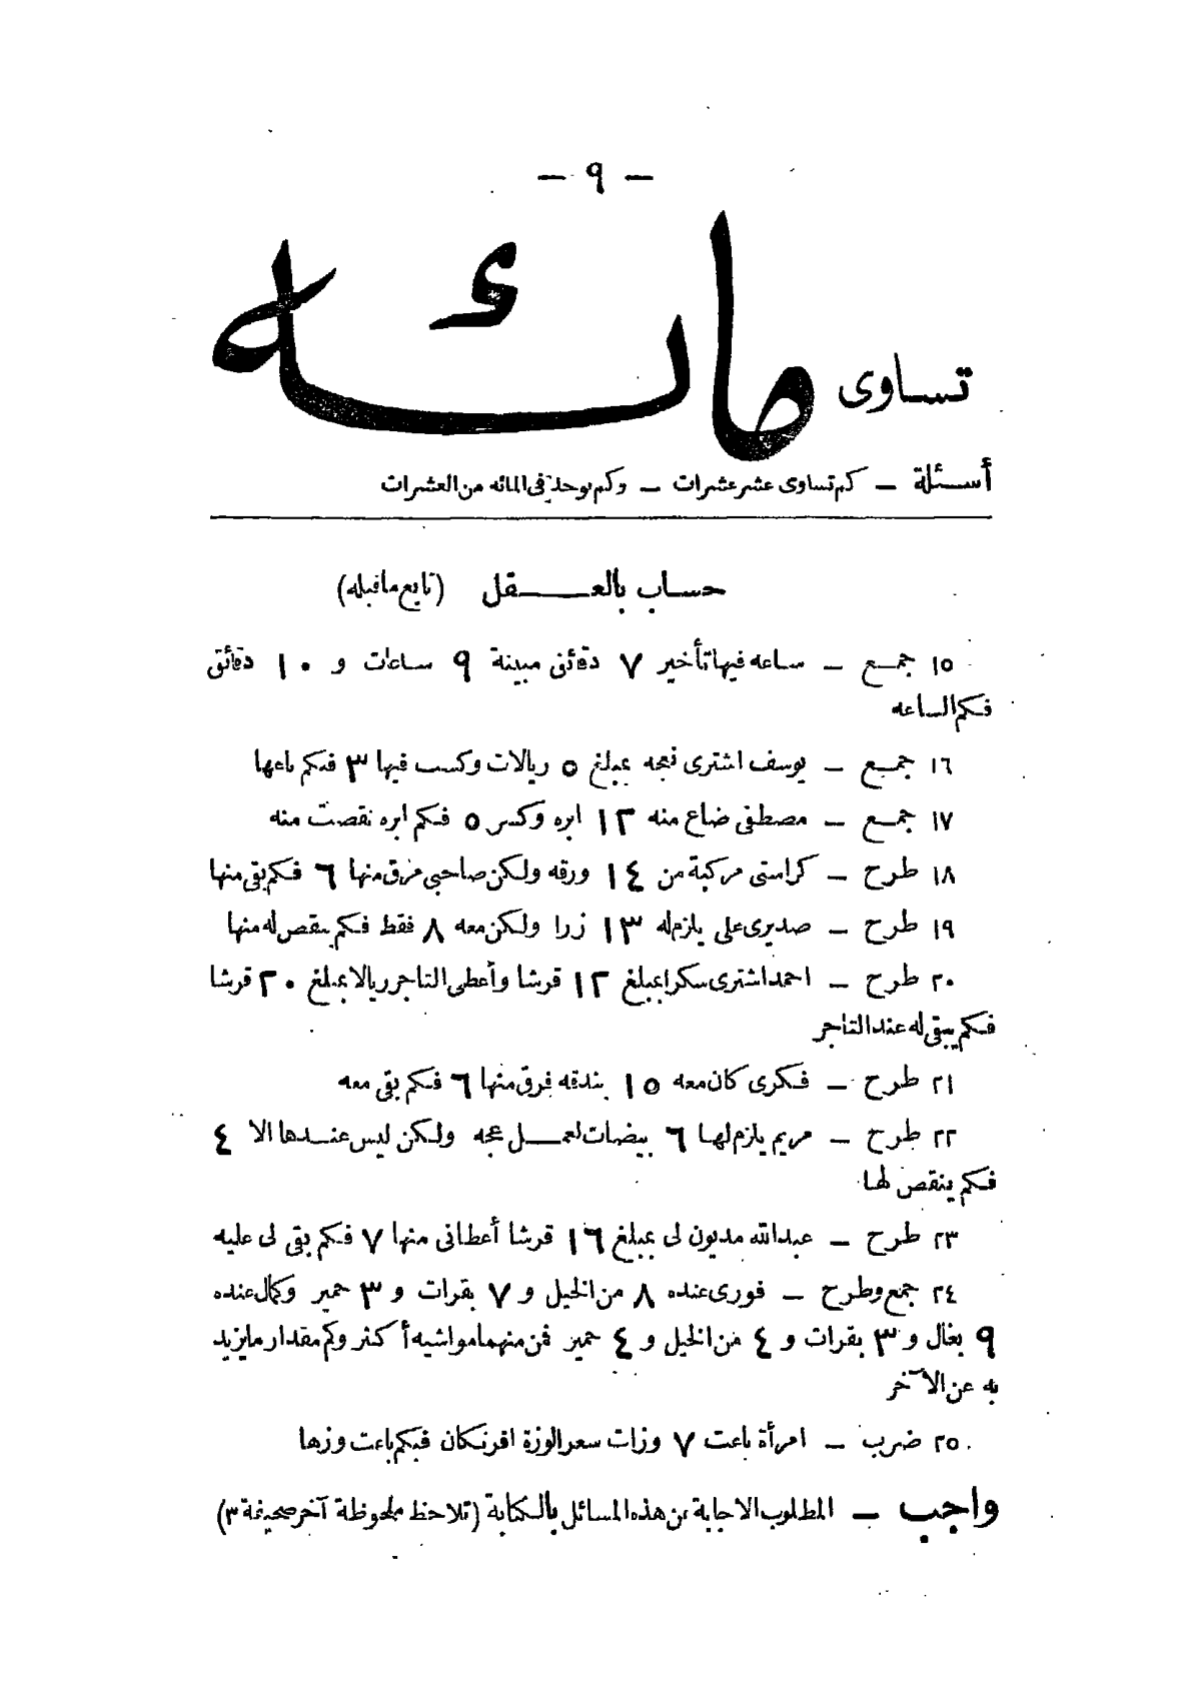 — ٩ —
تساوى مائه
أسئلة — كم تساوى عشر عشرات — وكم يوجد فى المائه من العشرات
حساب بالعقل (تابع ماقبله)
١٥ جمع — ساعه فيها تأخير ٧ دقائق مبينة ٩ ساعات و ١٠ دقائق
فكم الساعه
١٦ جمع — يوسف اشترى نعجه بمبلغ ٥ ريالات وكسب فيها ٣ فبكم باعها
١٧ جمع — مصطفى ضاع منه ١٢ ابره وكسر ٥ فكم ابره نقصت منه
١٨ طرح — كراستى مركبة من ١٤ ورقه ولكن صاحبى مزق منها ٦ فكم بقى منها
١٩ طرح — صديرى على يلزم له ١٣ زرا ولكن معه ٨ فقط فكم ينقص له منها
٢٠ طرح — احمد اشترى سكرا بمبلغ ١٢ قرشا وأعطى التاجر ريالا بمبلغ ٢٠ قرشا
فكم يبقى له عند التاجر
٢١ طرح — فكرى كان معه ١٥ بندقه فرق منها ٦ فكم بقى معه
٢٢ طرح — مريم يلزم لها ٦ بيضات لعمل عجه ولكن ليس عندها الا ٤
فكم ينقص لها
٢٣ طرح — عبدالله مديون لى بمبلغ ١٦ قرشا أعطانى منها ٧ فكم بقى لى عليه
٢٤ جمع وطرح — فورى عنده ٨ من الخيل و ٧ بقرات و ٣ حمير وكمال عنده
٩ بغال و ٣ بقرات و ٤ من الخيل و ٤ حمير فمن منهما مواشيه أكثر وكم مقدار مايزيد
به عن الآخر
٢٥ ضرب — امرأة باعت ٧ وزات سعر الوزة افرنكان فبكم باعت وزها
واجب — المطلوب الاجابة عن هذه المسائل بالكتابة (تلاحظ ملحوظة آخر صحيفة ٣)